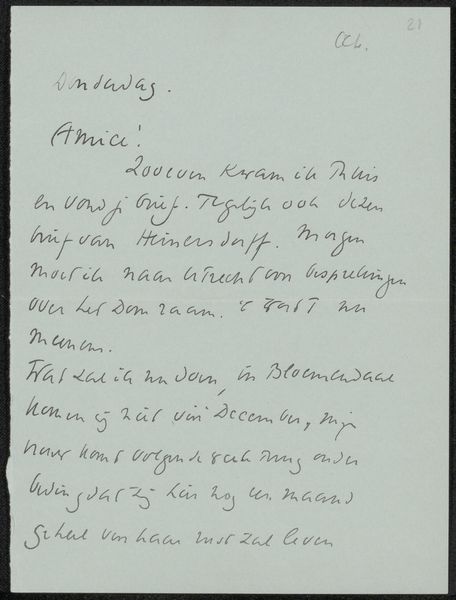 21
Oct.
Donderdag.
Amice!
Zooeven kwam ik thuis
en vond je brief. Tegelijk ook dezen
brief van Heinersdorff. Morgen
moet ik naar Utrecht om besprekingen
over het Domraam. 't Word nu
meenens.
Wat zal ik nu doen, in Bloemendaal
komen zij niet vóór December, mijn
komt volgende week terug onder
beding dat zij hier nog een maand
geheel van haar rust zal leven